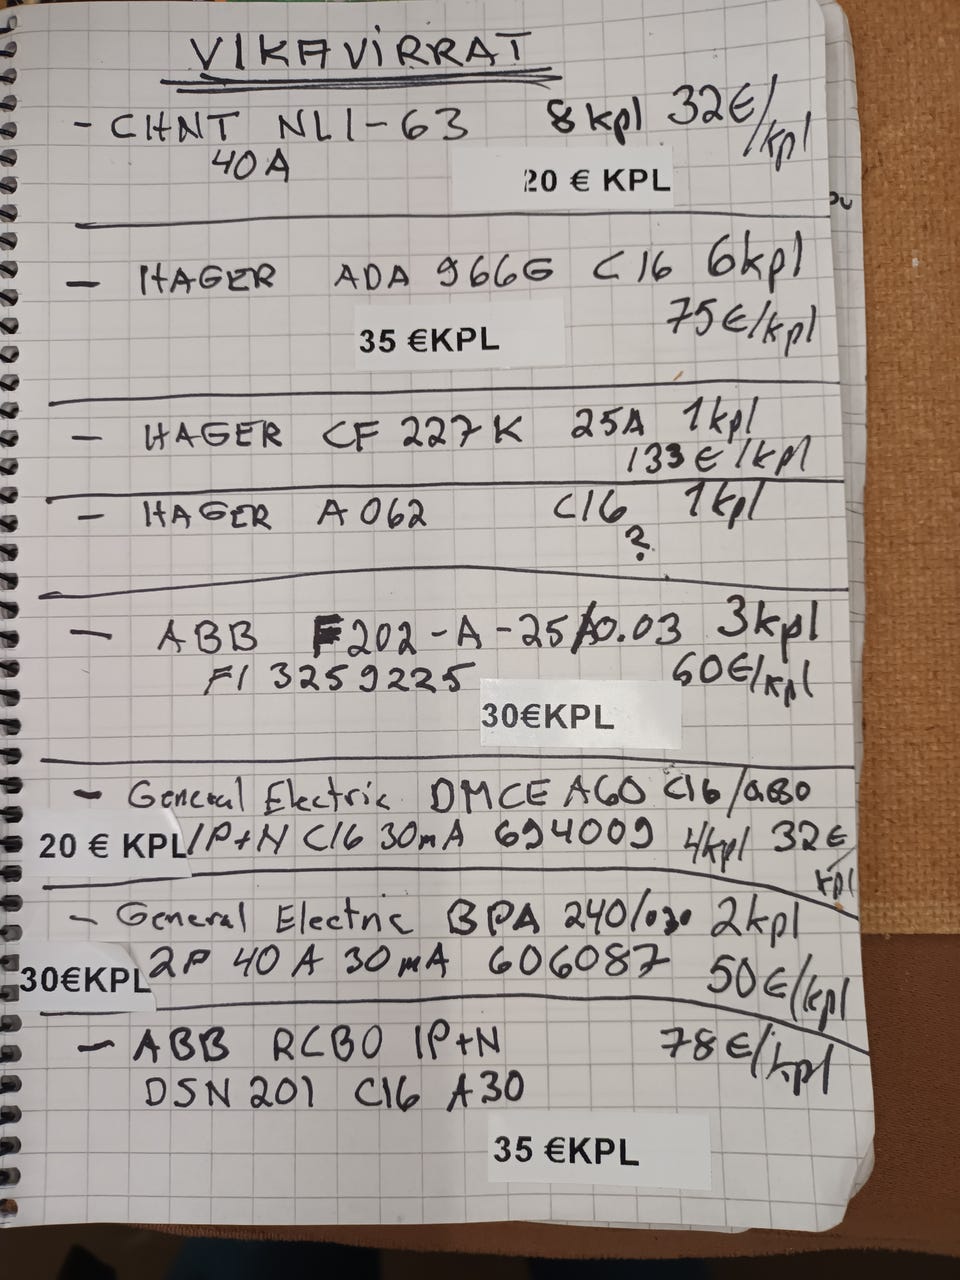 VIKAVIRRAT
- CHNT NL1-63 8kpl 32€/kpl
40A
20 € KPL
- HAGER ADA 966G C16 6kpl
75€/kpl
35 €KPL
- HAGER CF 227K 25A 1kpl
133€/kpl
- HAGER A062 C16 1kpl
?
- ABB F202-A-25/0.03 3kpl
FI 3259225 60€/kpl
30€KPL
- General Electric DMCE A60 C16/
20 € KPL 1P+N C16 30mA 694009 4kpl 32€
kpl
- General Electric BPA 240/030 2kpl
30€KPL 2P 40A 30mA 606087 50€/kpl
- ABB RCBO 1P+N 78€/kpl
DSN 201 C16 A30
35 €KPL